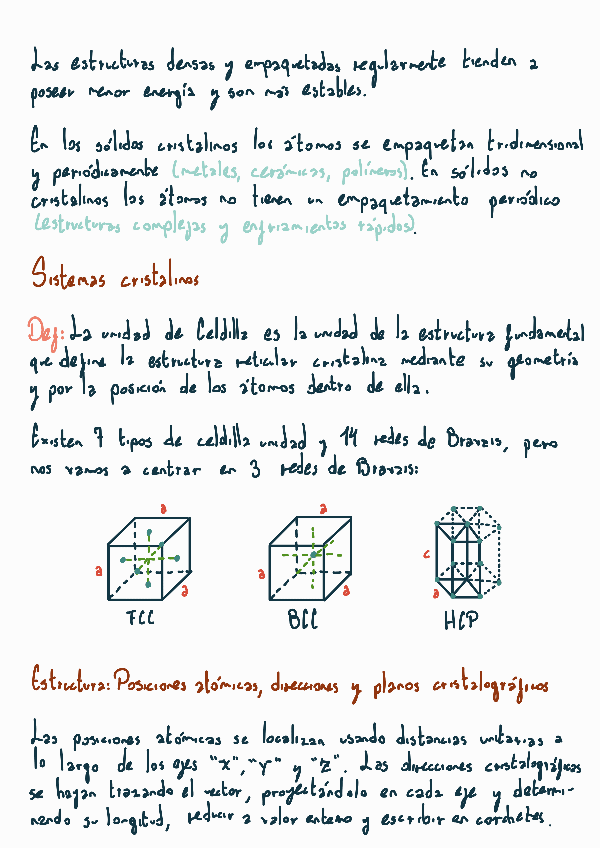 Las estructuras densas y empaquetadas regularmente tienden a
poseer menor energía y son más estables.
En los sólidos cristalinos los átomos se empaquetan tridimensional
y periódicamente (metales, cerámicas, polímeros). En sólidos no
cristalinos los átomos no tienen un empaquetamiento periódico
(estructuras complejas y enfriamientos rápidos).
Sistemas cristalinos
Def: La unidad de Celdilla es la unidad de la estructura fundamental
que define la estructura reticular cristalina mediante su geometría
y por la posición de los átomos dentro de ella.
Existen 7 tipos de celdilla unidad y 14 redes de Bravais, pero
nos vamos a centrar en 3 redes de Bravais:
a a
a a c
a a a
FCC BCC HCP
Estructura: Posiciones atómicas, direcciones y planos cristalográficos
Las posiciones atómicas se localizan usando distancias unitarias a
lo largo de los ejes "X", "Y" y "Z". Las direcciones cristalográficas
se hayan trazando el vector, proyectándolo en cada eje y determi-
nando su longitud, reducir a valor entero y escribir en corchetes.